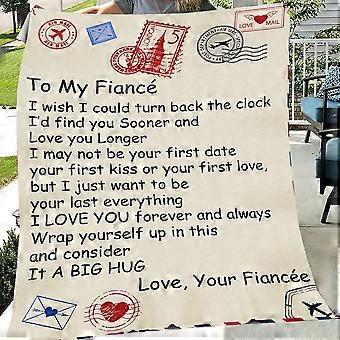 AIR MAIL
AIR MAIL
5
LOVE MAIL
To My Fiancé
I wish I could turn back the clock
I'd find you Sooner and
Love you Longer
I may not be your first date
your first kiss or your first love,
but I just want to be
your last everything
I LOVE YOU forever and always
Wrap yourself up in this
and consider
It A BIG HUG
Love, Your Fiancée